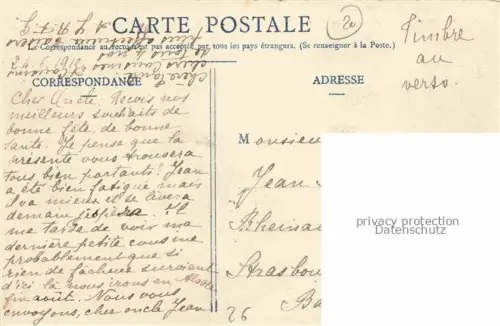 CARTE POSTALE
20
La Correspondance au recto n'est pas acceptée par tous les pays étrangers. (Se renseigner à la Poste.)
CORRESPONDANCE
Cher Oncle, Reçois nos
meilleurs souhaits de
bonne fête, de bonne
santé. Je pense que la
présente vous trouvera
tous bien portants. Jean
a été bien fatigué mais
il va mieux et se lèvera
demain j'espère. Il
me tarde de voir ma
dernière petite cousine
probablement que si
rien de fâcheux survient
d'ici là nous irons en Alsace
fin août. Nous vous
envoyons, cher oncle Jean
ADRESSE
Timbre
au
verso.
Monsieur
Jean
Rheinau
Strasbou
Ba
26
privacy protection
Datenschutz